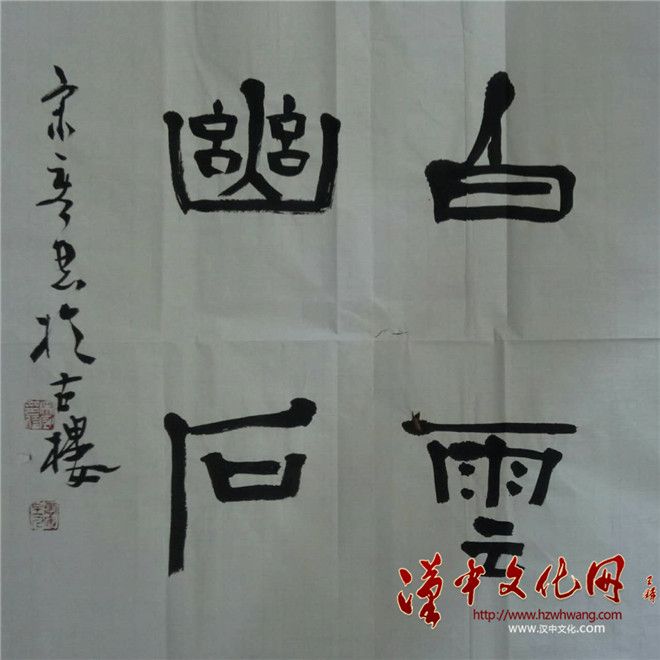 白雲
幽石
於古樓
漢中文化网
http://www.hzwhwang.com
www.汉中文化.com